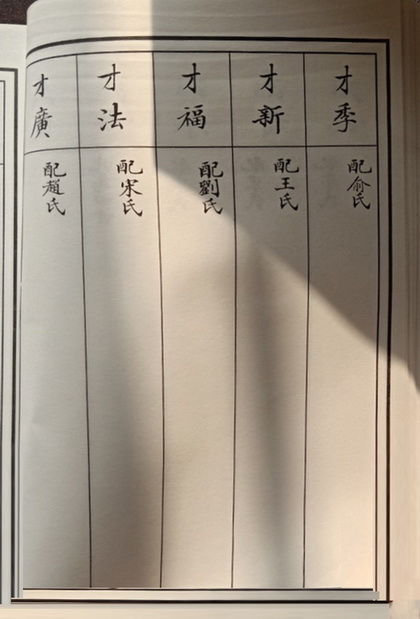 才季
配俞氏
才新
配王氏
才福
配劉氏
才法
配宋氏
才廣
配趙氏